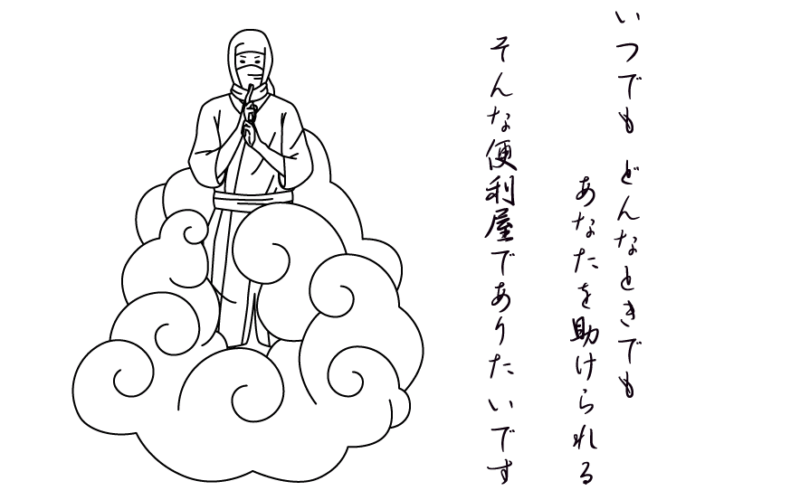 いつでも どんなときでも
あなたを助けられる
そんな便利屋でありたいです